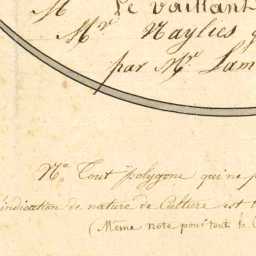 M. Le vaillant
Mme Naylies
par Mr. Lam
Na. Tout polygone qui ne p
indication de nature de Culture est
(Même note pour tout le